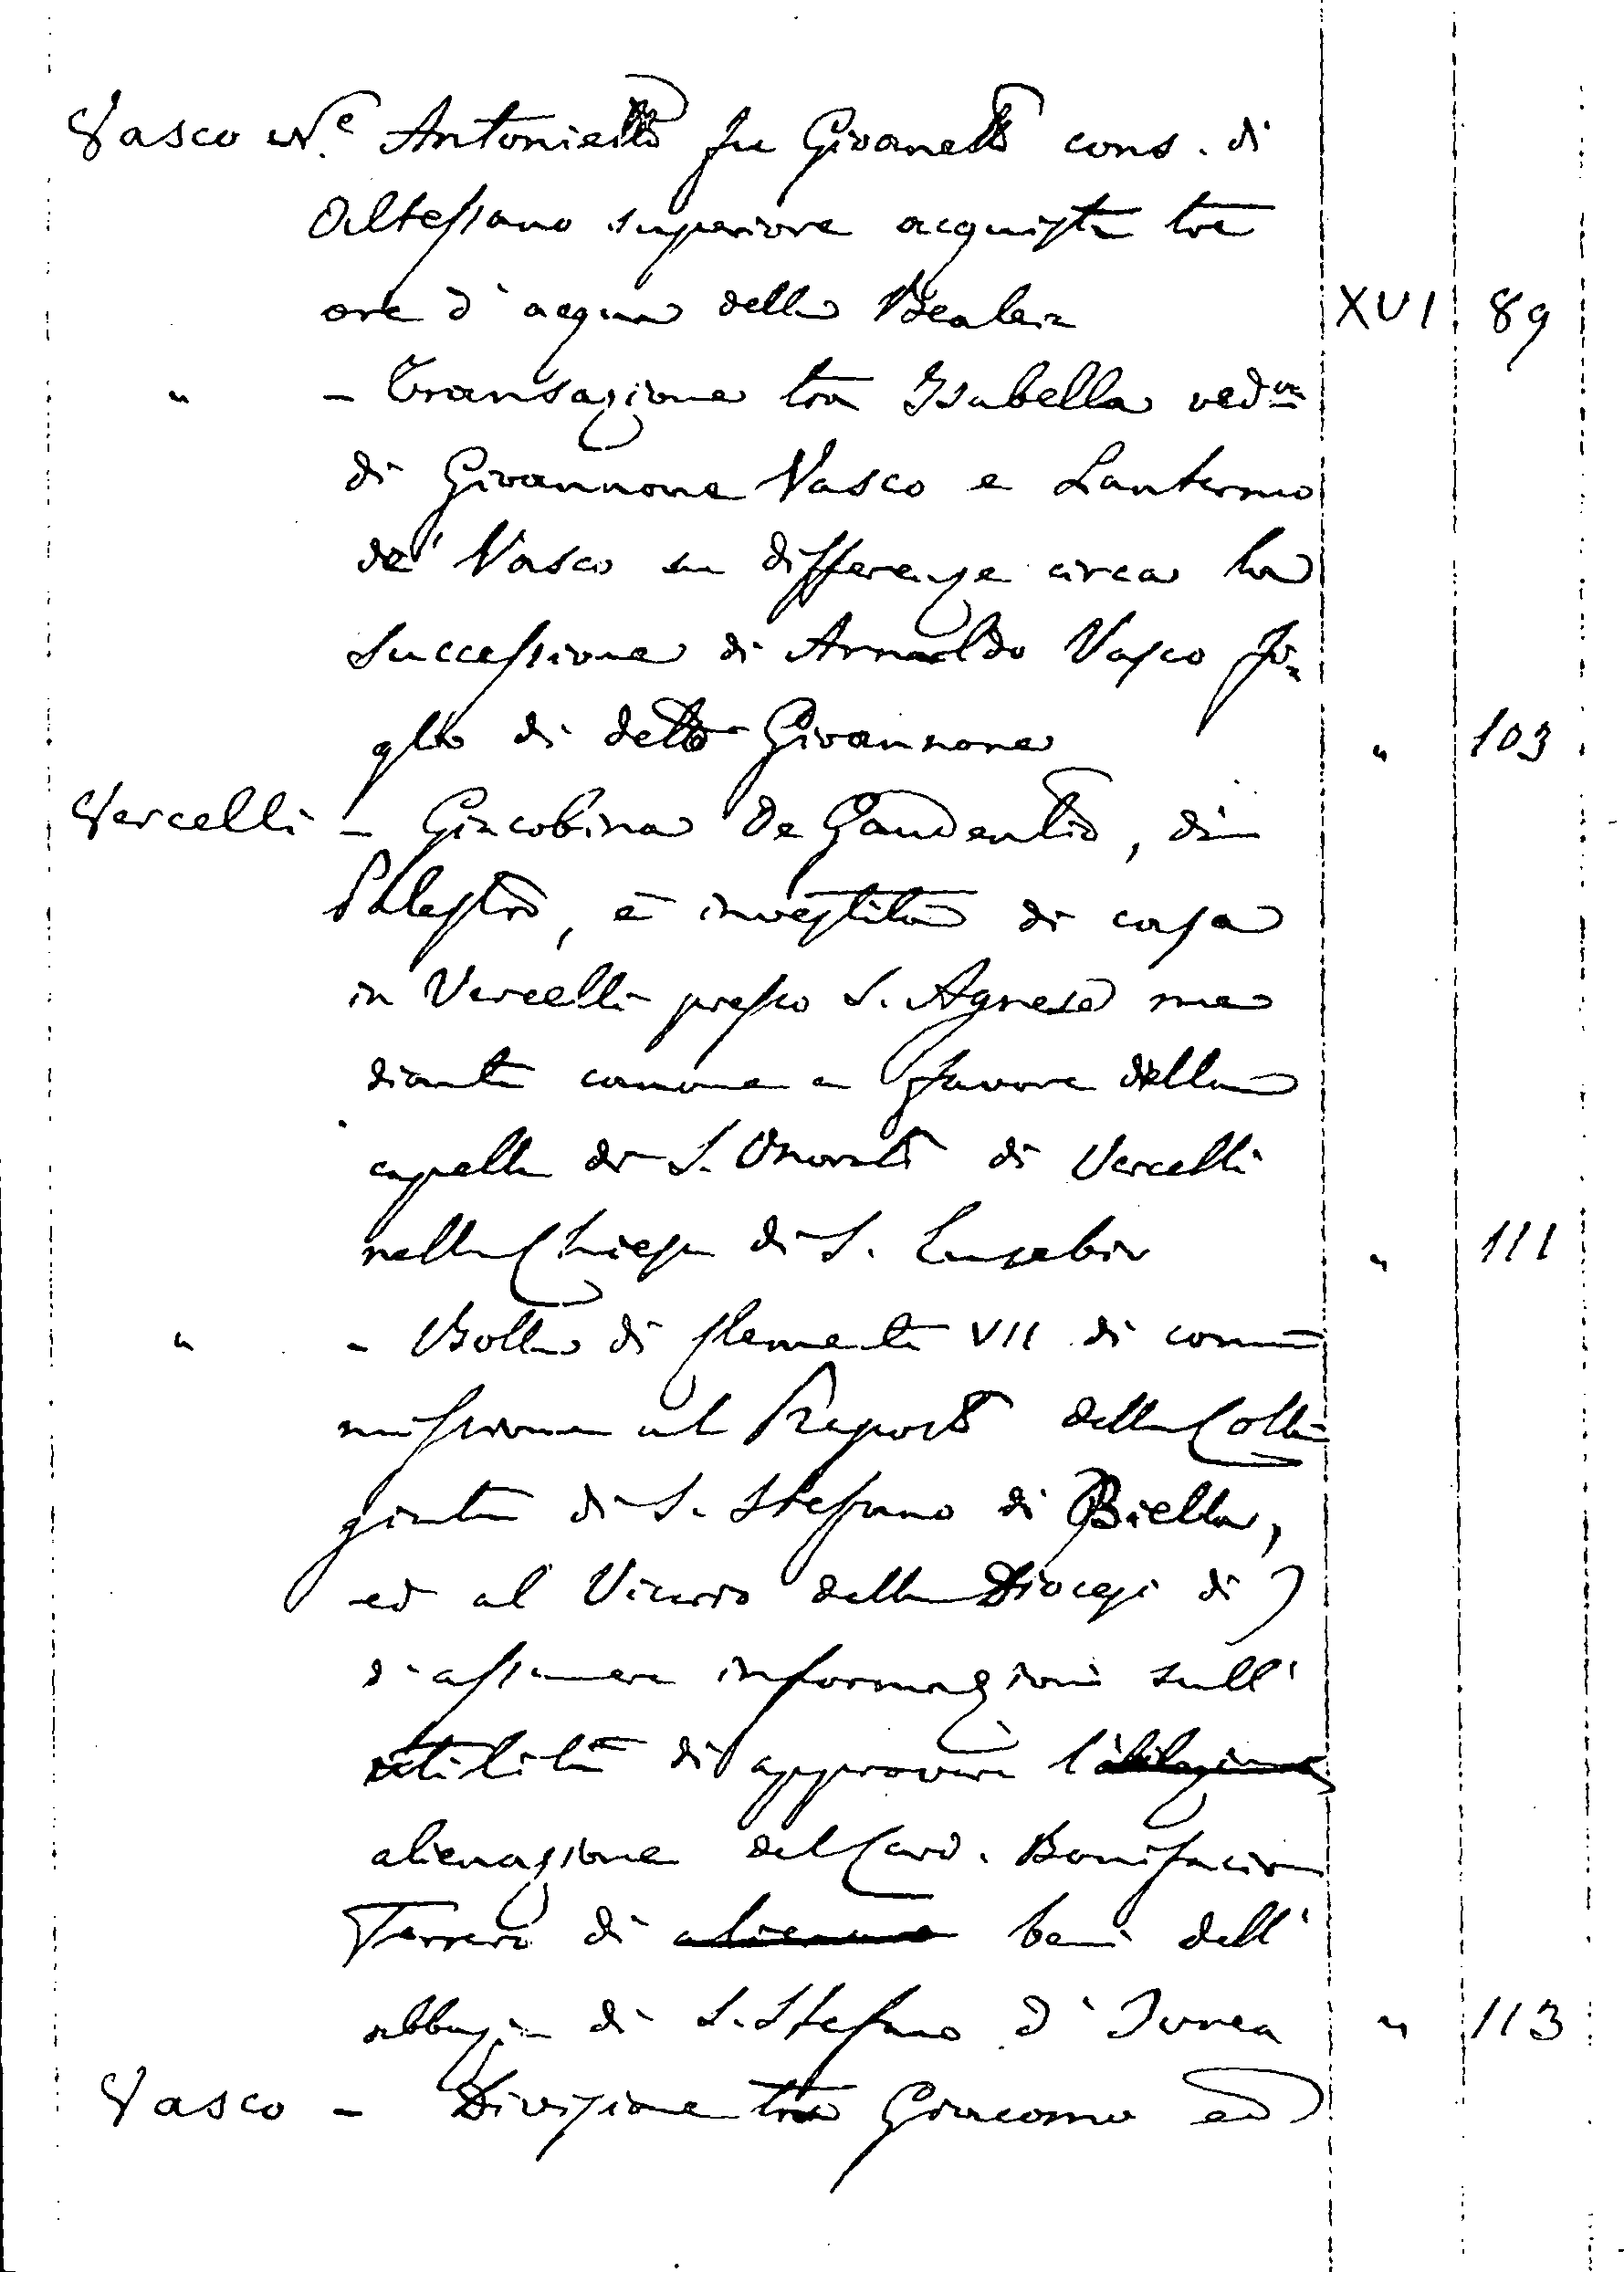 Vasco N.e Antonietto fu Givanetto cons. di
Altessano superiore acquista tre
ore d'acqua della Bealera XVI 89
" - Transazione tra Isabella ved.va
di Giovannone Vasco e Lantermo
de' Vasco su differenze circa la
successione di Arnaldo Vasco fi-
glio di detto Giovannone " 103
Vercelli - Giacobina De Gaudentio, di
Palestro, è investita di casa
in Vercelli presso S. Agnese me
diante canone a favore della
capella di S. Onorato di Vercelli
nella Chiesa di S. Eusebio " 111
" - Bolla di Clemente VII di com
missione al Preposto della Colle
giata di S. Stefano di Biella,
ed al Vicario della Diocesi di
d'assumere informazioni sull'
utilità di approvare l'
alienazione del Card. Bonifacio
Ferrero di beni dell'
abbazia di S. Stefano d'Ivrea " 113
Vasco - Divisione tra Giacomo ed